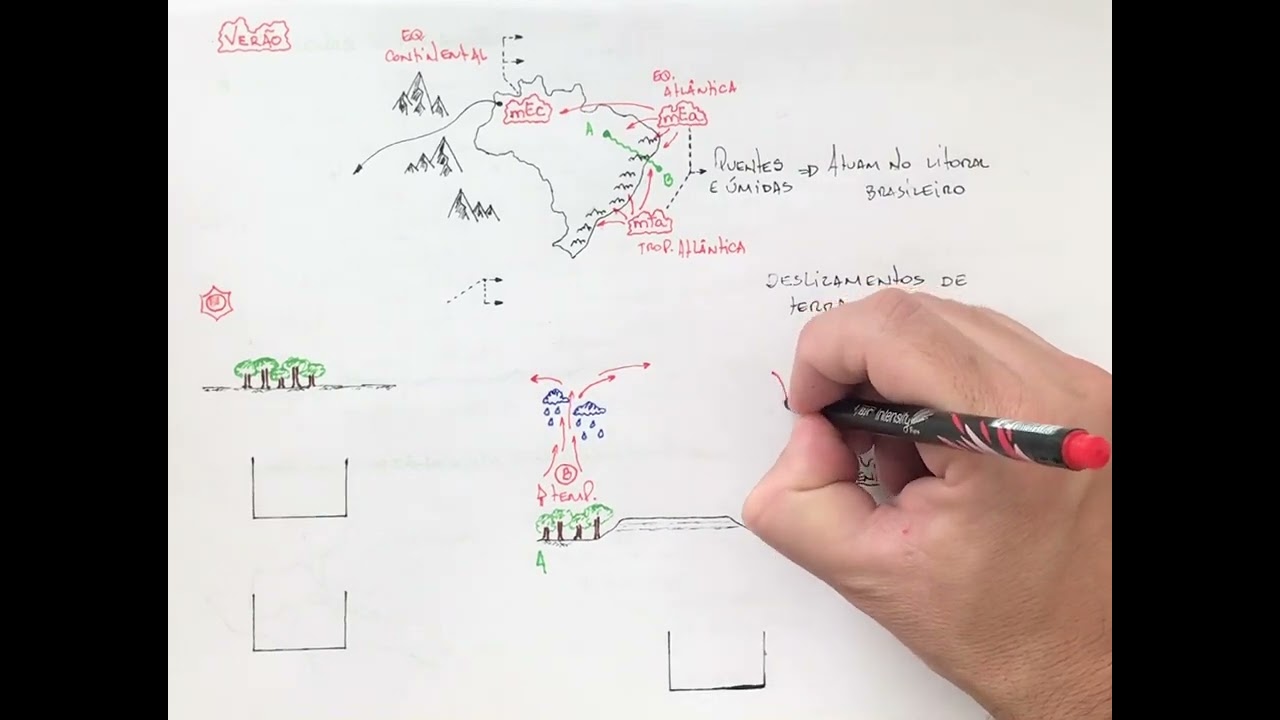 VERÃO
EQ.
CONTINENTAL
mEc
EQ.
ATLÂNTICA
mEa
A
B
QUENTES => ATUAM NO LITORAL
E ÚMIDAS BRASILEIRO
mTa
TROP. ATLÂNTICA
DESLIZAMENTOS DE
B
TEMP.
A
intensity